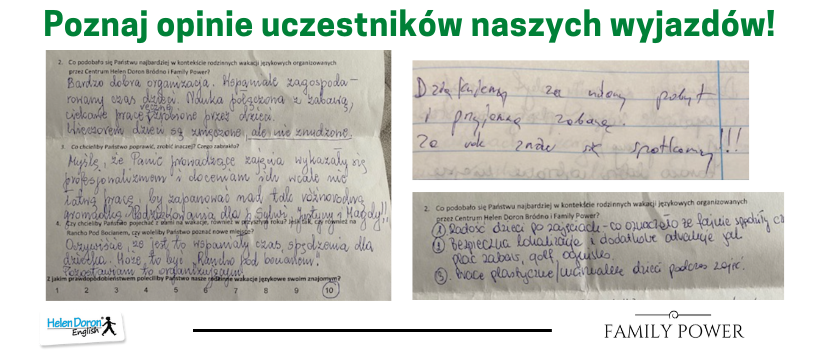 Poznaj opinie uczestników naszych wyjazdów!
2. Co podobało się Państwu najbardziej w kontekście rodzinnych wakacji językowych organizowanych
przez Centrum Helen Doron Bródno i Family Power?
Bardzo dobra organizacja. Wspaniale zagospoda-
rowany czas dzieci. Nauka połączona z zabawą,
ciekawe prace zrobione przez dzieci.
Wieczorem dzieci są zmęczone, ale nie znudzone.
3. Co chcieliby Państwo poprawić, zrobić inaczej? Czego zabrakło?
Myślę, że Panie prowadzące zajęcia wykazały się
profesjonalizmem i doceniam ich wcale nie
łatwą pracę, by zapanować nad tak różnorodną
gromadką. Podziękowania dla p. Sylwii, Justyny i Magdy!!
4. Czy chcieliby Państwo pojechać z nami na wakacje, również w przyszłym roku? Jeśli tak, czy również na
Rancho Pod Bocianem, czy woleliby Państwo poznać nowe miejsce?
Oczywiście, że jest to wspaniały czas, spędzony dla
dziecka. Może to być "Rancho pod bocianem".
Pozostawiam to organizującym.
jakim prawdopodobieństwem poleciliby Państwo nasze rodzinne wakacje językowe swoim znajomym?
1 2 3 4 5 6 7 8 9 10
Dziękujemy za udany pobyt
i przyjemną zabawę.
Za rok znów się spotkamy!!!
2. Co podobało się Państwu najbardziej w kontekście rodzinnych wakacji językowych organizowanych
przez Centrum Helen Doron Bródno i Family Power?
1 Radość dzieci po zajęciach - co oznaczało że fajnie spędziły cz
2 Bezpieczna lokalizacja i dodatkowe atrakcje jak
plac zabaw, golf, ognisko.
3. Prace plastyczne / dzieci podczas zajęć.
Helen Doron
English
FAMILY POWER